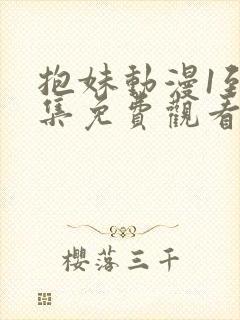 抱妹動漫1至
集免費觀看
櫻落三千